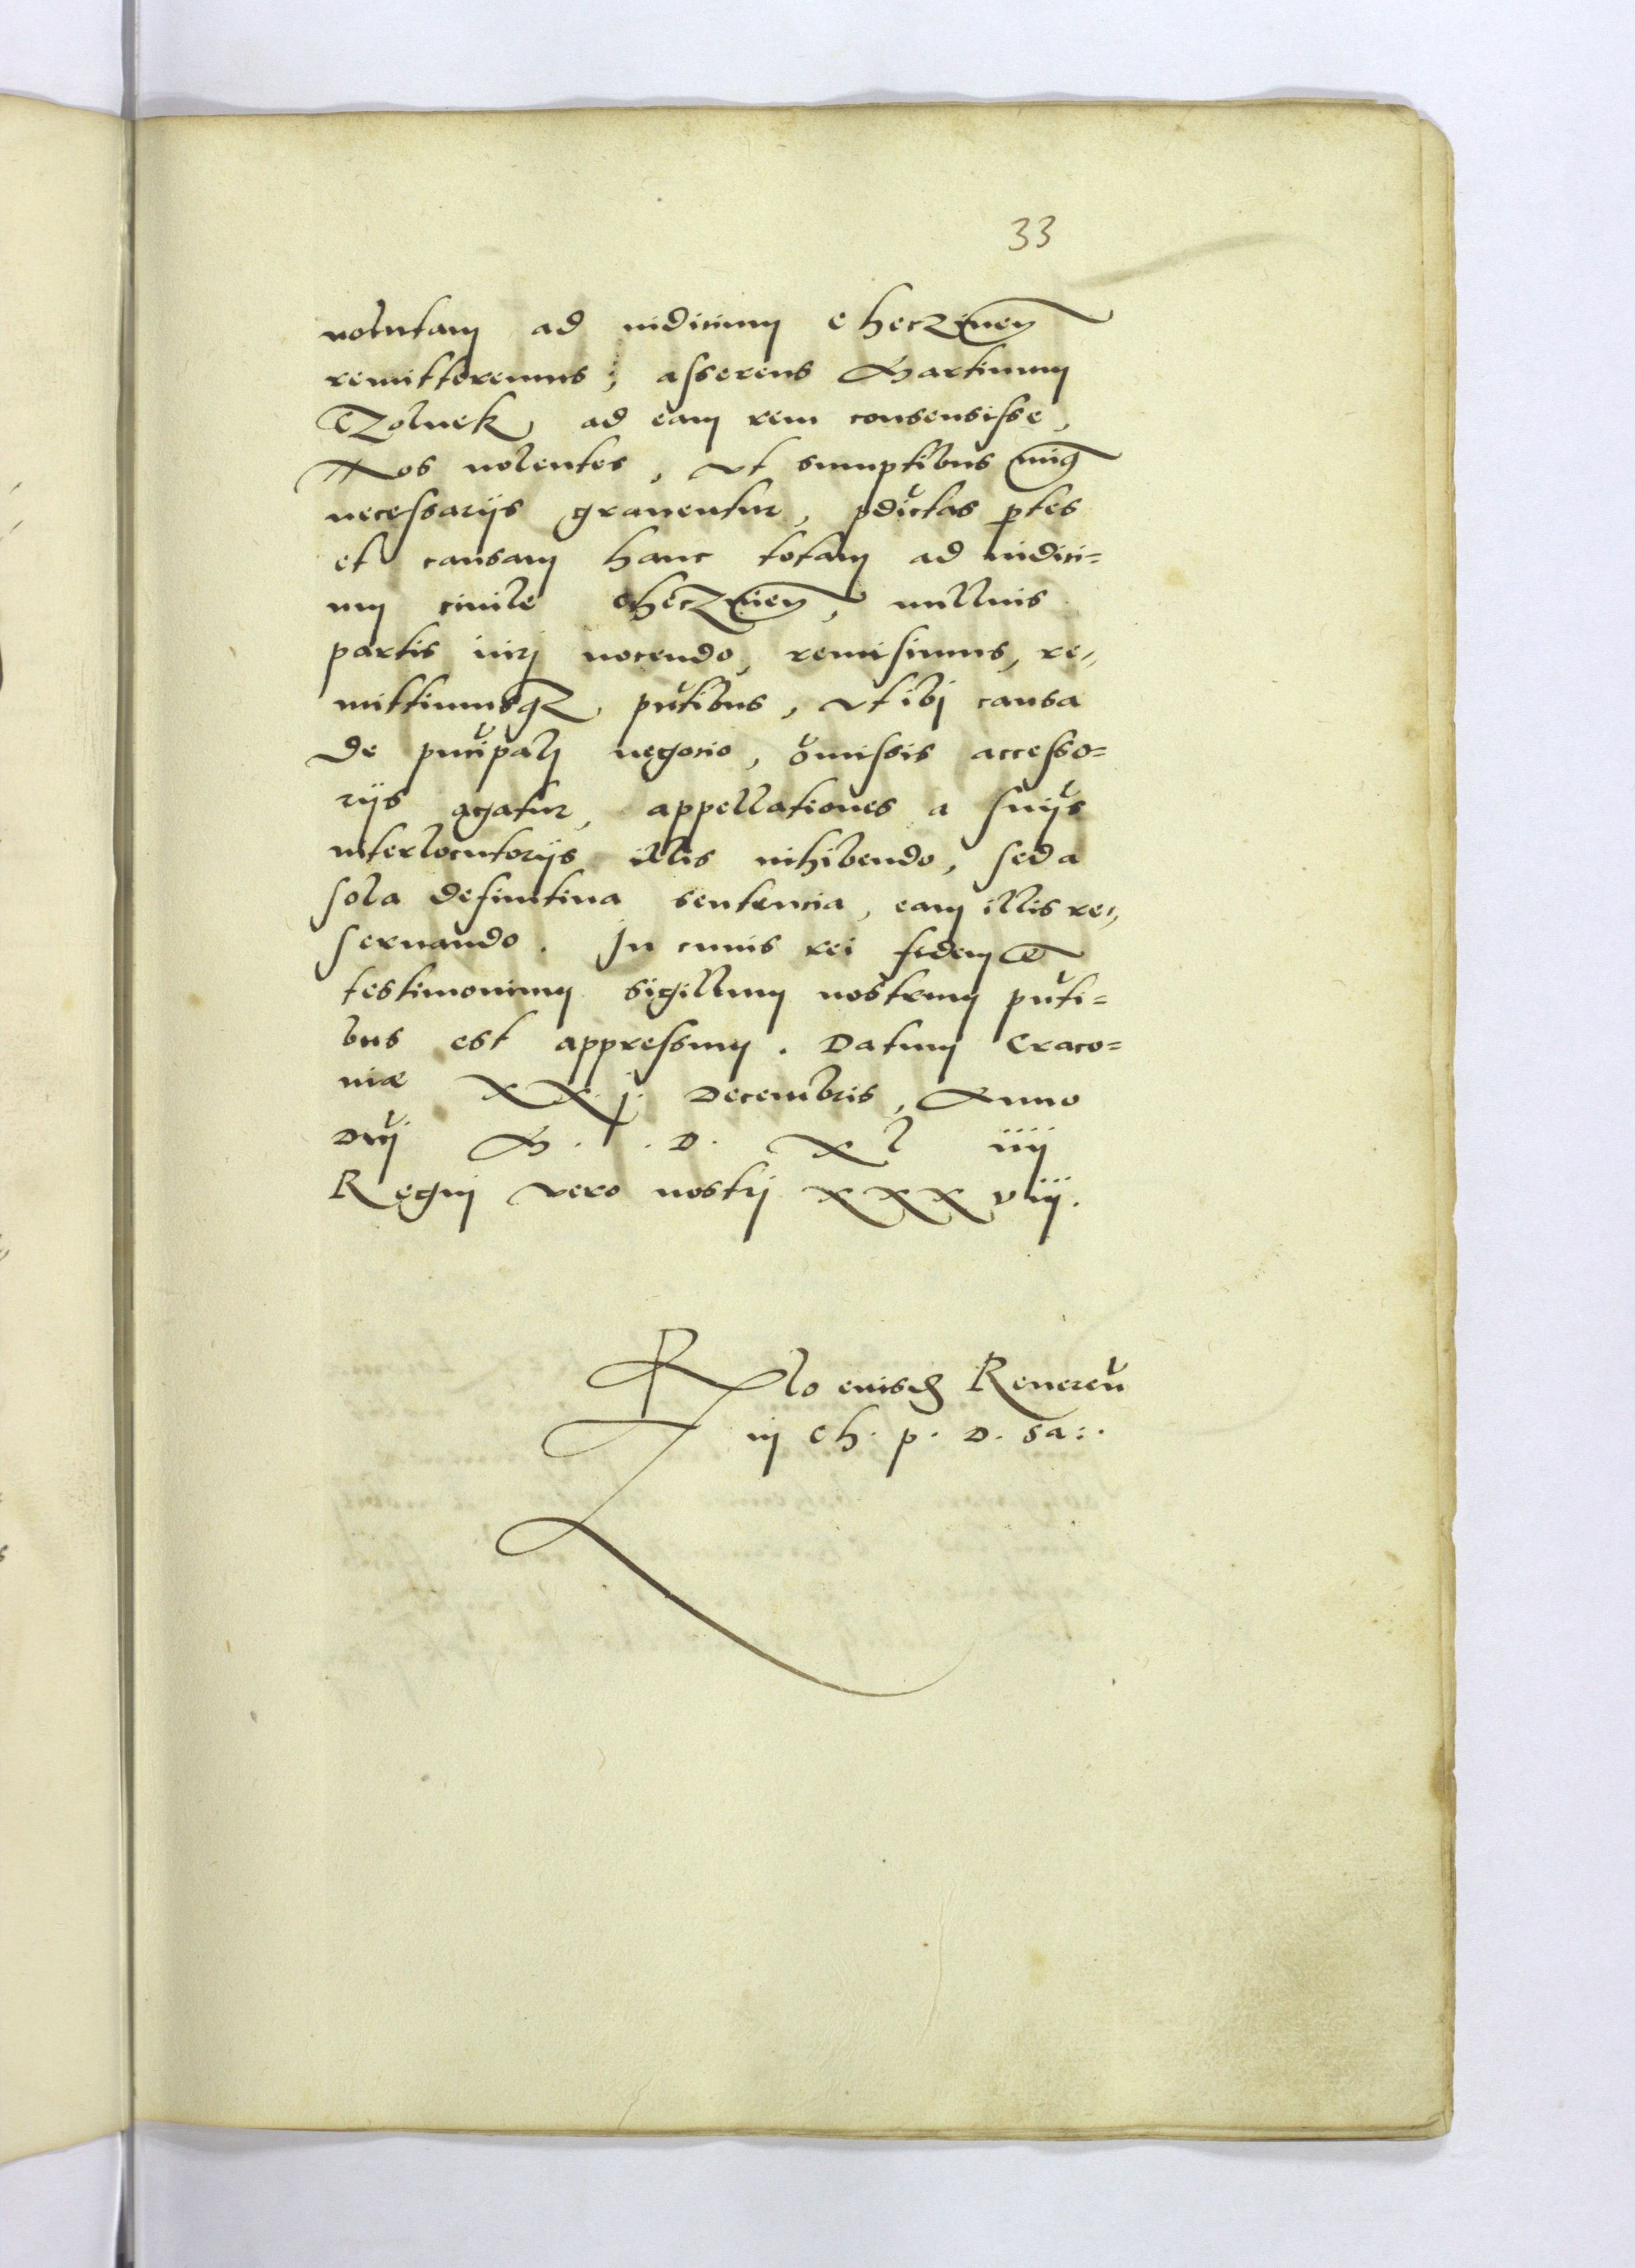 33
uolutam ad iudicium Checzinen̄
remitteremus, asserens Martinum
Czolnek, ad eam rem consensisse,
Nos nolentes, vt sumptibus
necessarijs grauentur, p̄dictas ꝑtes
et causam hanc totam ad iudici=
um ciuile Checzinen̄, nullius
partis iurj nocendo, remisimus, re=
mittimusqꝫ pñtibus, vt ibj causa
de pn̄cipalj negocio, omissis accesso=
rijs agatur, appellationes a sn̄ijs
interlocutorijs illis inhibendo, sed a
sola definitiua sententia, eam illis re=
seruando. In cuius rei fidem et
testimonium sigillum nostrum pñti=
bus est appressum. Datum Craco=
niæ XX.j. Decembris, Anno
Dn̄j M. D. XL iiij
Regnj vero nostrj XXX viij.
Rlo eiusdem Reueren̄
in Ch. p. D. Sa:.